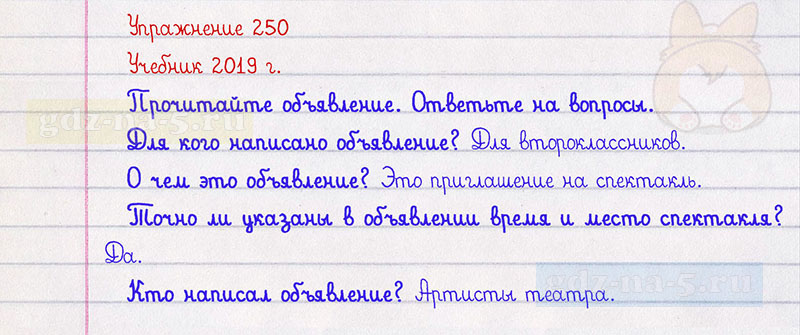 Упражнение 250
Учебник 2019 г.
Прочитайте объявление. Ответьте на вопросы.
Для кого написано объявление? Для второклассников.
О чем это объявление? Это приглашение на спектакль.
Точно ли указаны в объявлении время и место спектакля?
Да.
Кто написал объявление? Артисты театра.
gdz-na-5.ru
gdz-na-5.ru